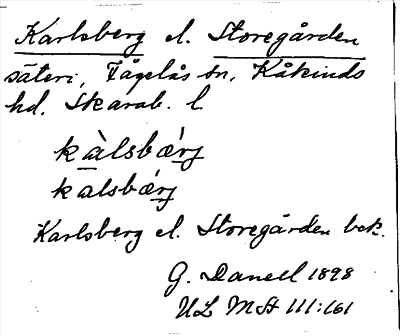 Karlsberg el. Storegården
säteri, Fågelås sn, Kåkinds
hd. Skarab. l.
kàlsbærj
kalsbærj
Karlsberg el. Storegården bek.
G. Danell 1898
ULMA 111:161